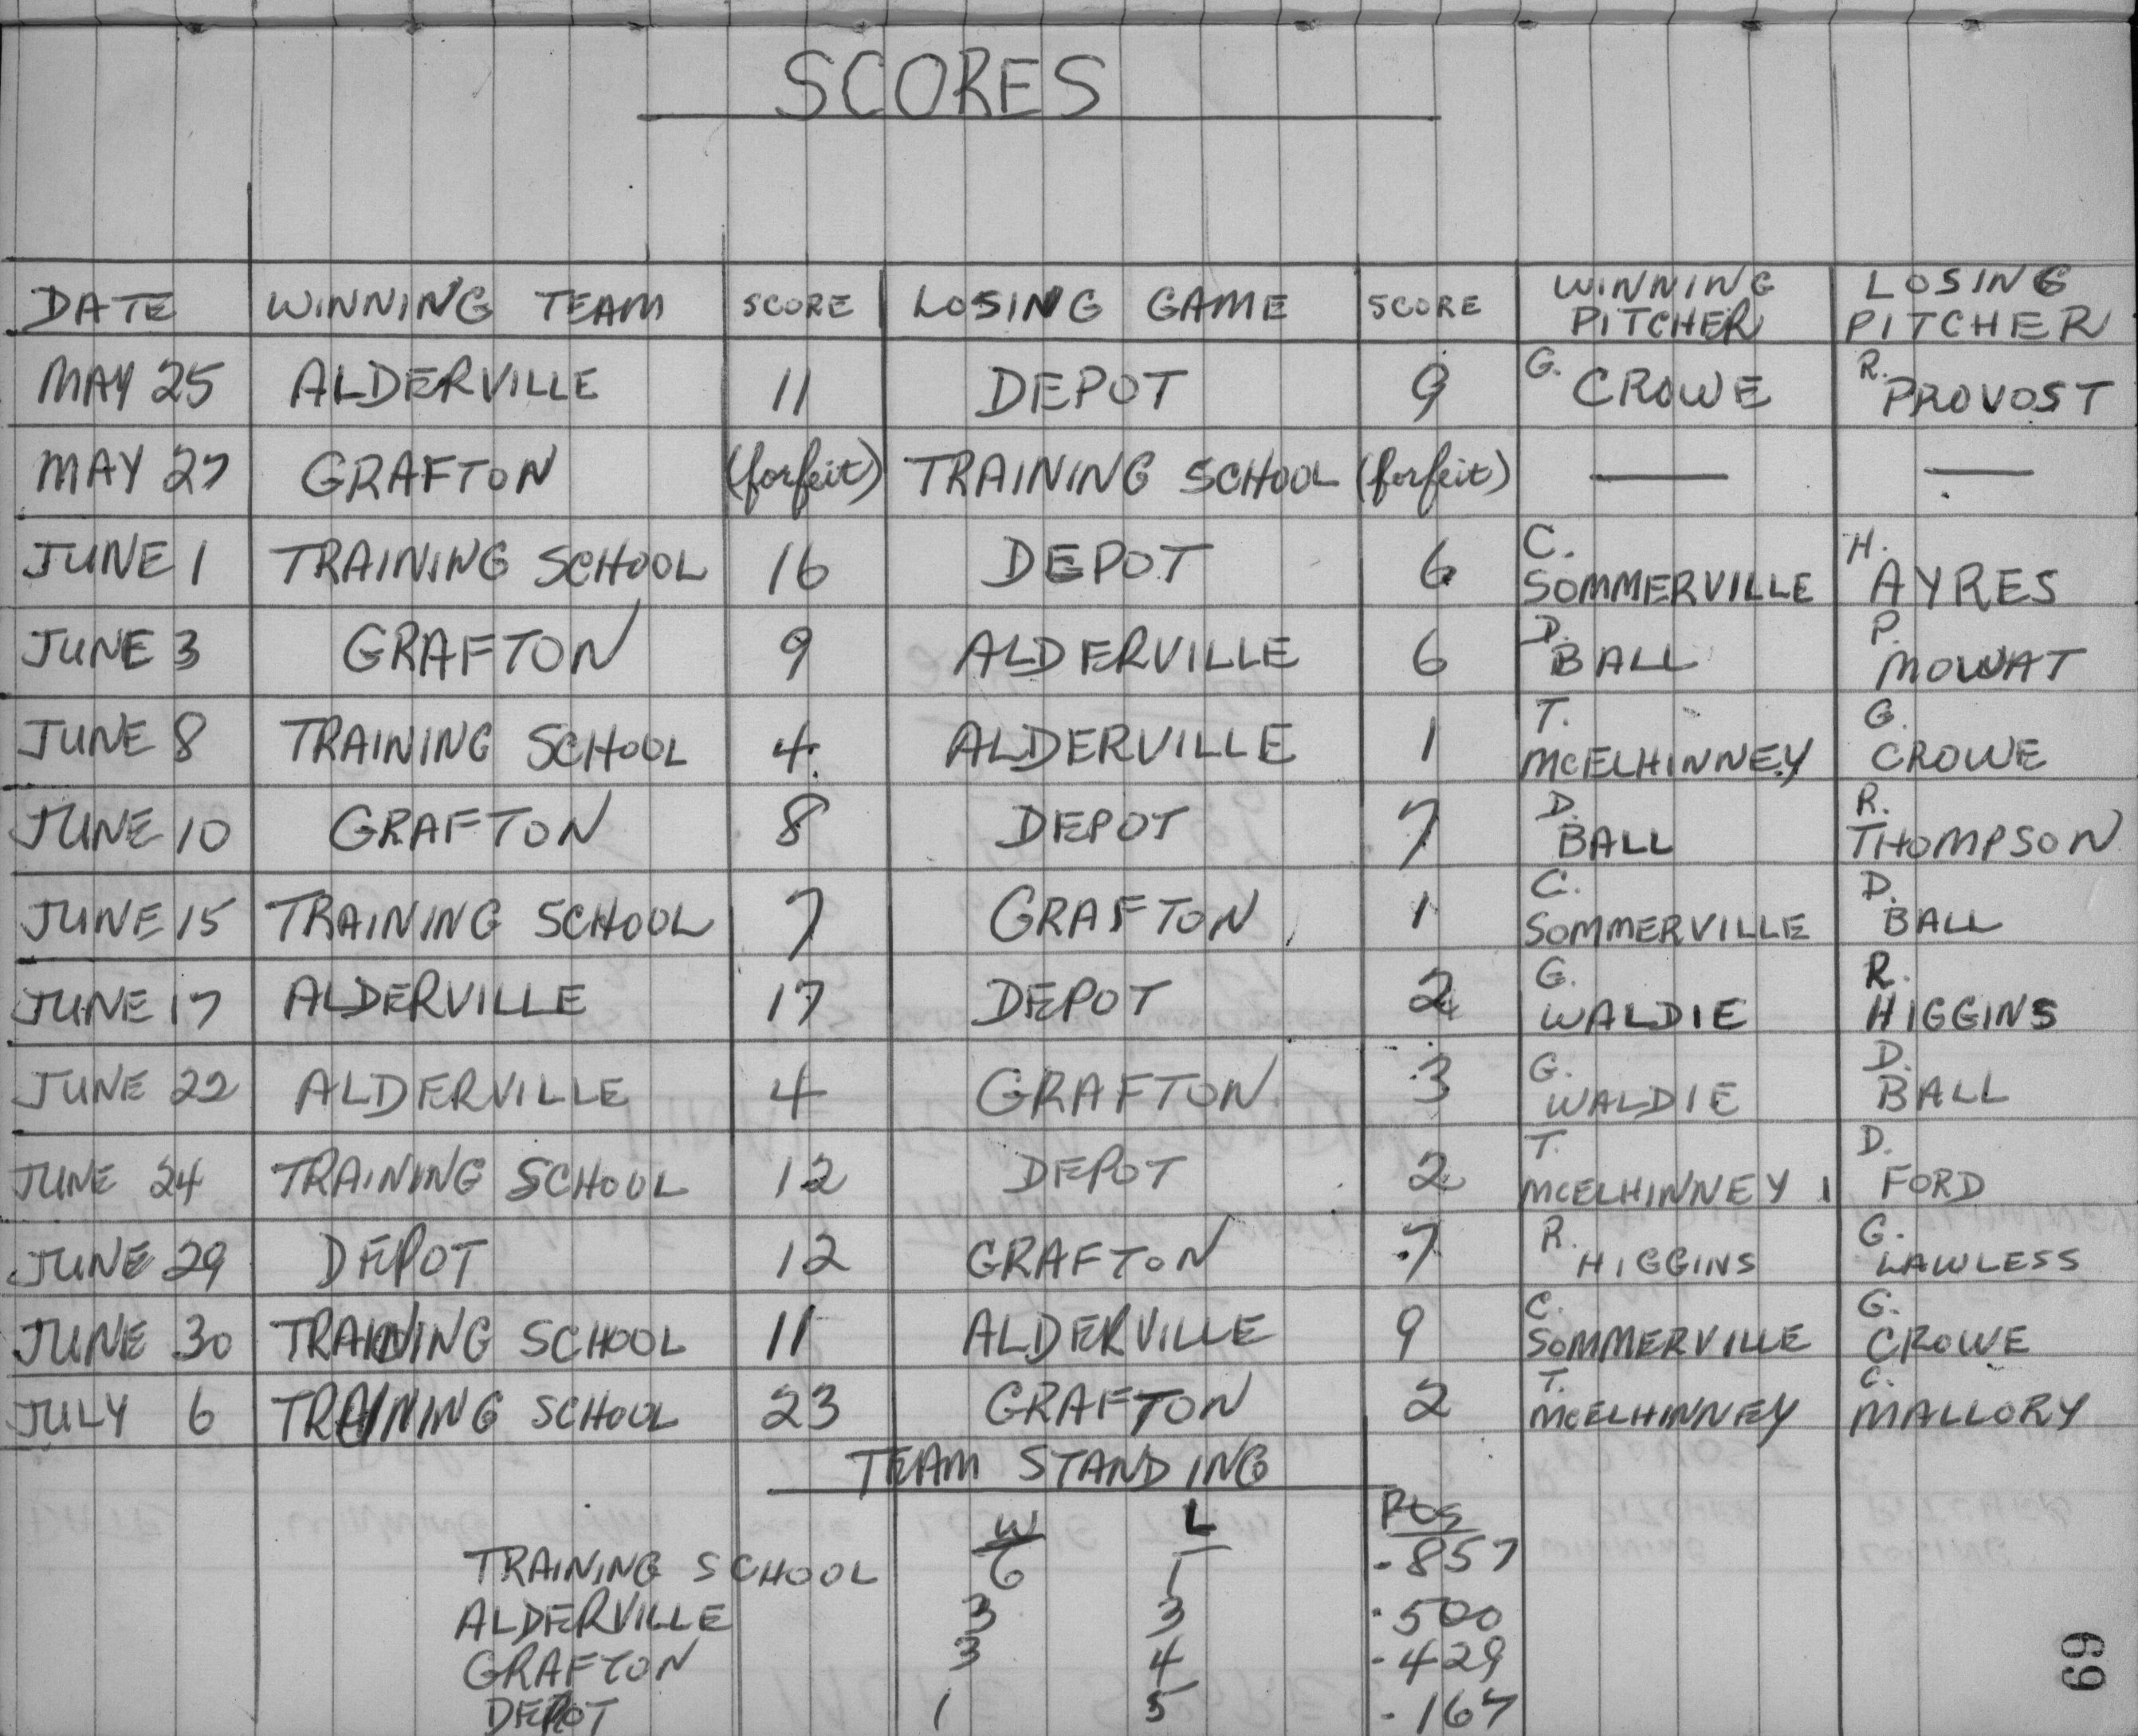 SCORES
DATE WINNING TEAM SCORE LOSING GAME SCORE WINNING PITCHER LOSING PITCHER
MAY 25 ALDERVILLE 11 DEPOT 9 G. CROWE R. PROVOST
MAY 27 GRAFTON (forfeit) TRAINING SCHOOL (forfeit) — —
JUNE 1 TRAINING SCHOOL 16 DEPOT 6 C. SOMMERVILLE H. AYRES
JUNE 3 GRAFTON 9 ALDERVILLE 6 D. BALL P. MOWAT
JUNE 8 TRAINING SCHOOL 4 ALDERVILLE 1 T. MCELHINNEY G. CROWE
JUNE 10 GRAFTON 8 DEPOT 7 D. BALL R. THOMPSON
JUNE 15 TRAINING SCHOOL 7 GRAFTON 1 C. SOMMERVILLE D. BALL
JUNE 17 ALDERVILLE 17 DEPOT 2 G. WALDIE R. HIGGINS
JUNE 22 ALDERVILLE 4 GRAFTON 3 G. WALDIE D. BALL
JUNE 24 TRAINING SCHOOL 12 DEPOT 2 T. MCELHINNEY D. FORD
JUNE 29 DEPOT 12 GRAFTON 7 R. HIGGINS G. LAWLESS
JUNE 30 TRAINING SCHOOL 11 ALDERVILLE 9 C. SOMMERVILLE G. CROWE
JULY 6 TRAINING SCHOOL 23 GRAFTON 2 T. MCELHINNEY C. MALLORY
TEAM STANDING
W L POS
TRAINING SCHOOL 6 1 .857
ALDERVILLE 3 3 .500
GRAFTON 3 4 .429
DEPOT 1 5 .167
69